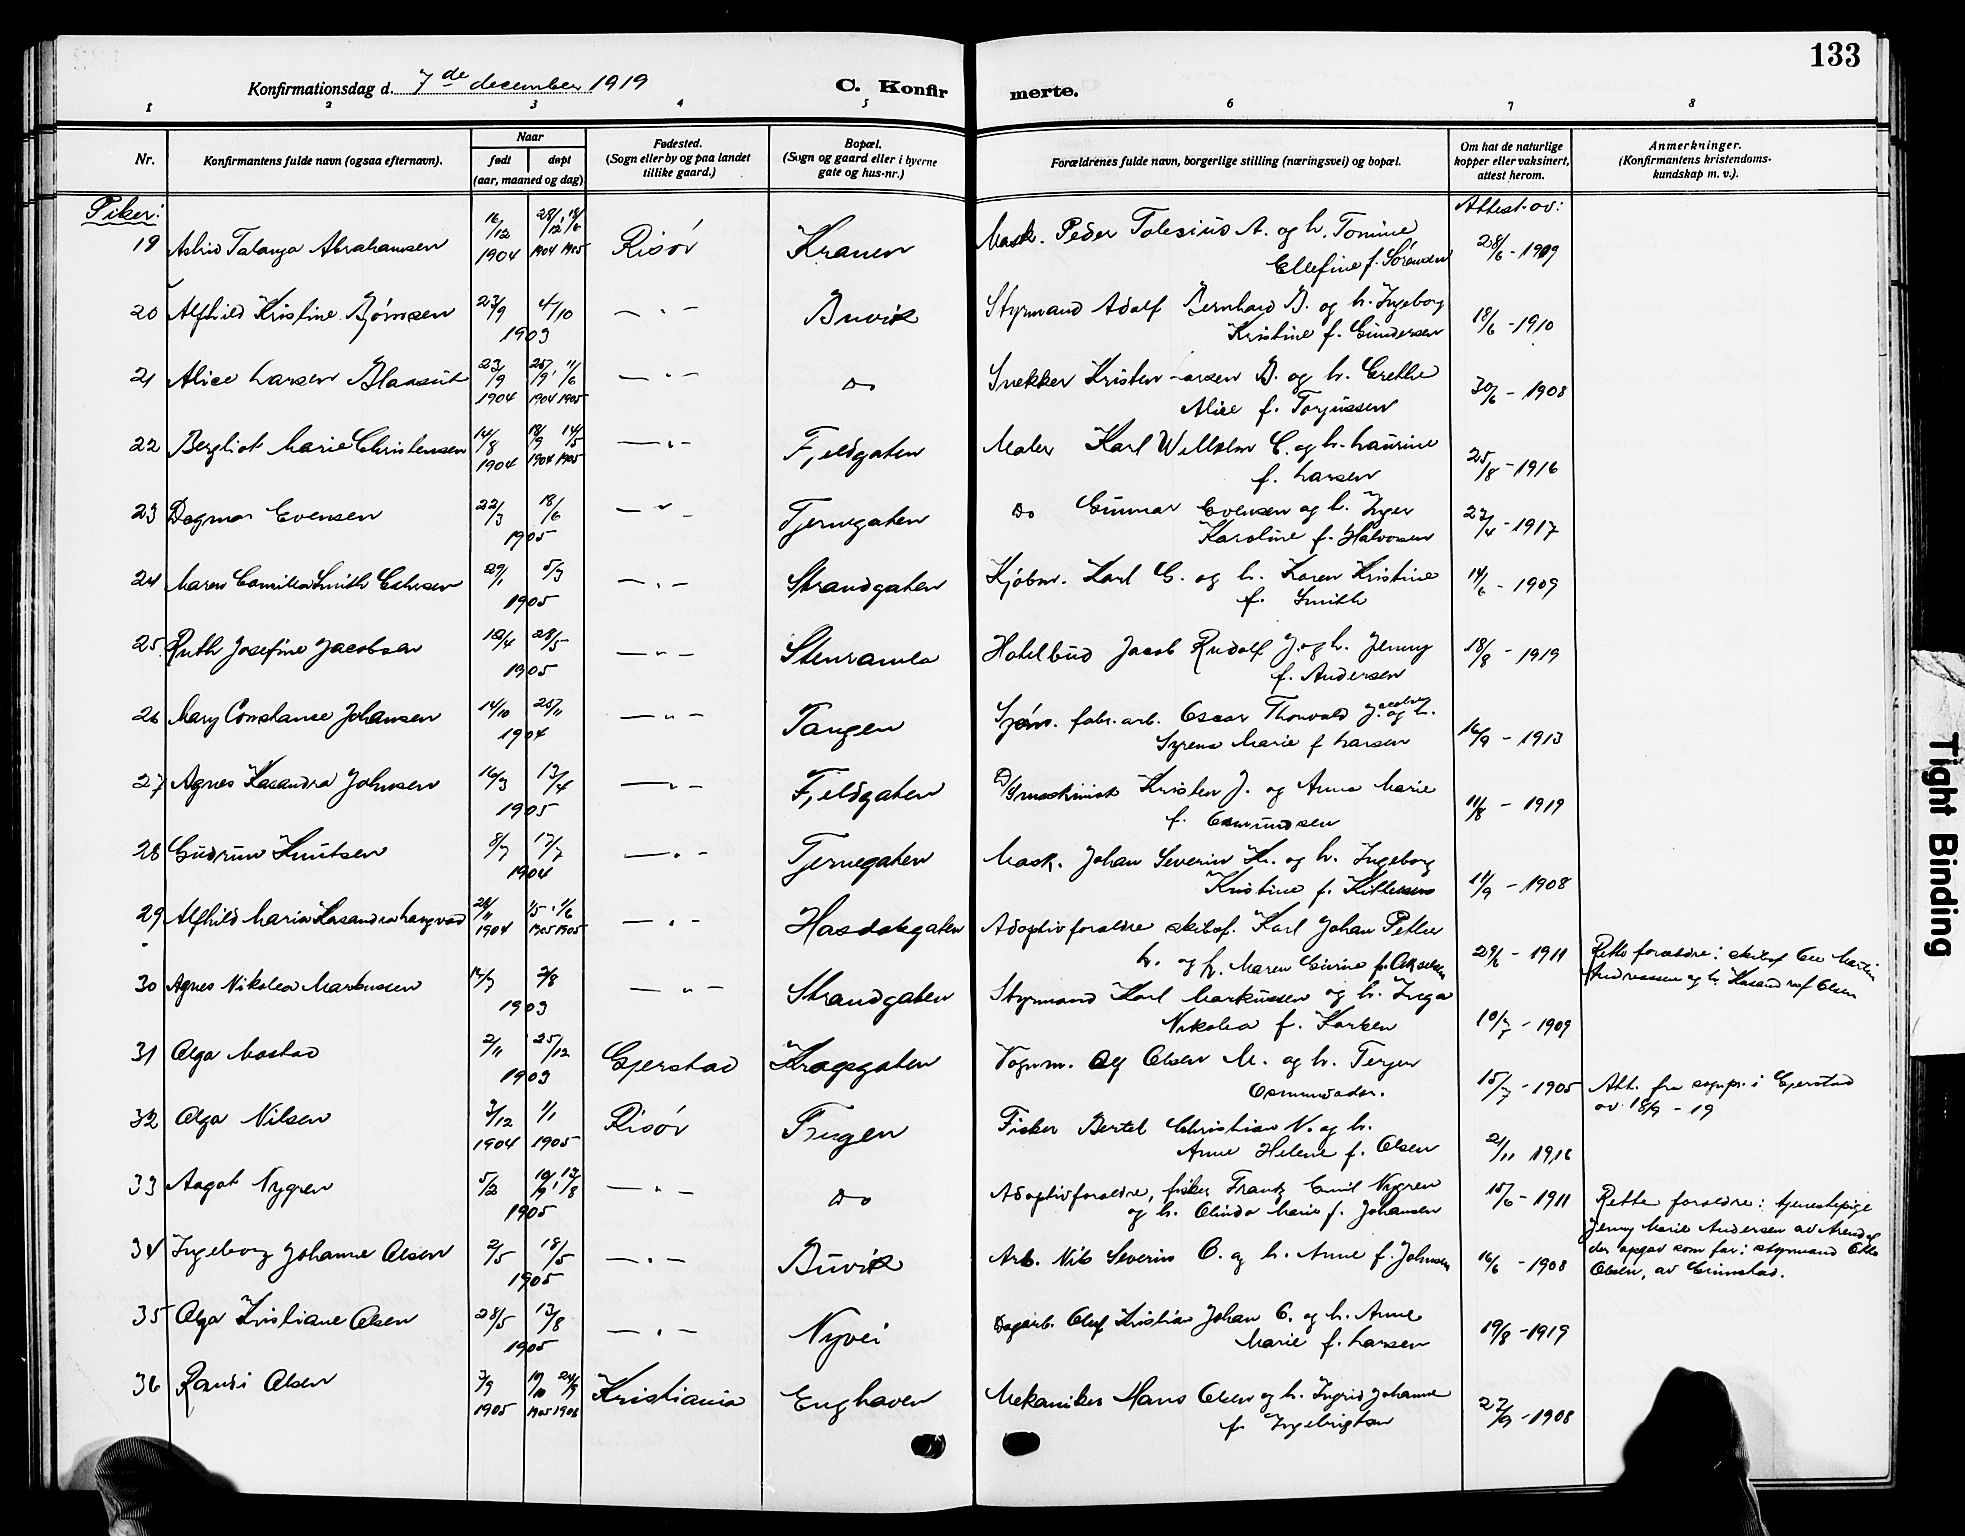 133
Konfirmationsdag d. 7de december 1919
C. Konfirmerte.
1 2 3 4 5 6 7 8
Nr.
Konfirmantens fulde navn (ogsaa efternavn).
Naar
født
døpt
(aar, maaned og dag)
Fødested.
(Sogn eller by og paa landet
tillike gaard.)
Bopæl.
(Sogn og gaard eller i byerne
gate og hus-nr.)
Forældrenes fulde navn, borgerlige stilling (næringsvei) og bopæl.
Om hat de naturlige
kopper eller vaksinert,
attest herom.
Anmerkninger.
(Konfirmantens kristendoms-
kundskap m. v.).
Piker: Attest av:
19 Astrid Abrahamsen 16/12 1904 28/12 1904 18/6 1905 Risør Kranen Mask. Peder A. og h. Tomine
Ellefine f. Sørensen 28/6 - 1909
20 Alfhild Kristine Bjørnsen 23/9 4/10 1903 — " — Buvik Styrmand Adolf Bernhard B. og h. Ingeborg
Kristine f. Gundersen 18/6 - 1910
21 Alice Larsen Blaasut 23/9 1904 25/9 1904 11/6 1905 — " — Do Snekker Kristen Larsen B. og h. Grethe
Alice f. Torjussen 30/6 - 1908
22 Bergliot Marie Christensen 14/8 1904 18/9 1904 14/5 1905 — " — Fjeldgaten Maler Karl Wilhelm C. og h. Laurine
f. Larsen 25/8 - 1916
23 Dagmar Evensen 22/3 18/6 1905 — " — Tjernegaten Do Gunnar Evensen og h. Inger
Karoline f. Halvorsen 27/4 - 1917
24 Maren Camilla Smith 29/1 5/3 1905 — " — Strandgaten Kjøbm. Karl G. og h. Karen Kristine
f. Smith 14/6 - 1909
25. Ruth Josefine Jacobsen 12/4 28/5 1905 — " — Stenramla Hotelbud Jacob Rudolf J. og h. Jenny
f. Andersen 18/8 - 1919
26 Mary Constanse Johansen 14/10 25/11 1904 — " — Tangen fabr. arb. Oscar Thorvald J. og h.
Marie f. Larsen 16/9 - 1913
27 Agnes Kasandra Johnsen 16/3 13/4 1905 — " — Fjeldgaten Kristen J. og Anna Marie
f. Osmundsen 11/8 - 1919
28 Gudrun Knutsen 8/7 17/7 1904 — " — Tjernegaten Mask. Johan Severin K. og h. Ingeborg
Kristine f. Kittelsen 11/9 - 1908
29 Alfhild Maria Kasandra Langvad 28/11 1904 1/5 1905 1/6 1905 — " — Hasdalsgaten Adoptivforældre skibsf. Karl Johan Petter
L. og h. Maren Gurine f. Akselsen 29/6 - 1911 Rette forældre: skibsf. Ole Martin
Andreassen og h. Kasandra f. Olsen
30 Agnes Nikolea Markussen 12/7 2/8 1903 — " — Strandgaten Styrmand Karl Markussen og h. Inga
Nikolea f. Karlsen 10/7 - 1909
31 Olga Mostad 2/11 25/12 1903 Gjerstad Kragsgaten Vognm. Olsen M. og h. Terjer
Osmundsdtr. 15/7 - 1905 Att. fra sogepr. i Gjerstad
av 18/9 - 19
32 Olga Nilsen 3/12 1904 1/1 1905 Risør Tangen Fisker Bertel Christian N. og h.
Anne Helene f. Olsen 21/11 1916
33 Aagot Nygren 5/2 10/9 13/8 1905 — " — Do Adoptivforældre, fisker Frantz Emil Nygren
og h. Olinda Marie f. Johansen 15/6 - 1911 Rette forældre: tjenestepige
Jenny Marie Andersen av Arendal
der opgav som far: styrmand Otto
Olsen, av Grimstad.
34 Ingeborg Johanne Olsen 2/5 18/5 1905 — " — Buvik Arb. Nils Severin O. og h. Anne f. Johnsen 16/6 - 1908
35 Olga Kristiane Olsen 28/5 13/8 1905 — " — Nyvei Dagarb. Oluf Kristian Johan O. og h. Anne
Marie f. Larsen 19/8 - 1919
36 Randi Olsen 3/9 1905 19/10 1905 24/9 1906 Kristiania Enghaven Mekaniker Hans Olsen og h. Ingrid Johanne
f. Ingebrigtsen 27/9 - 1908
Tight Binding